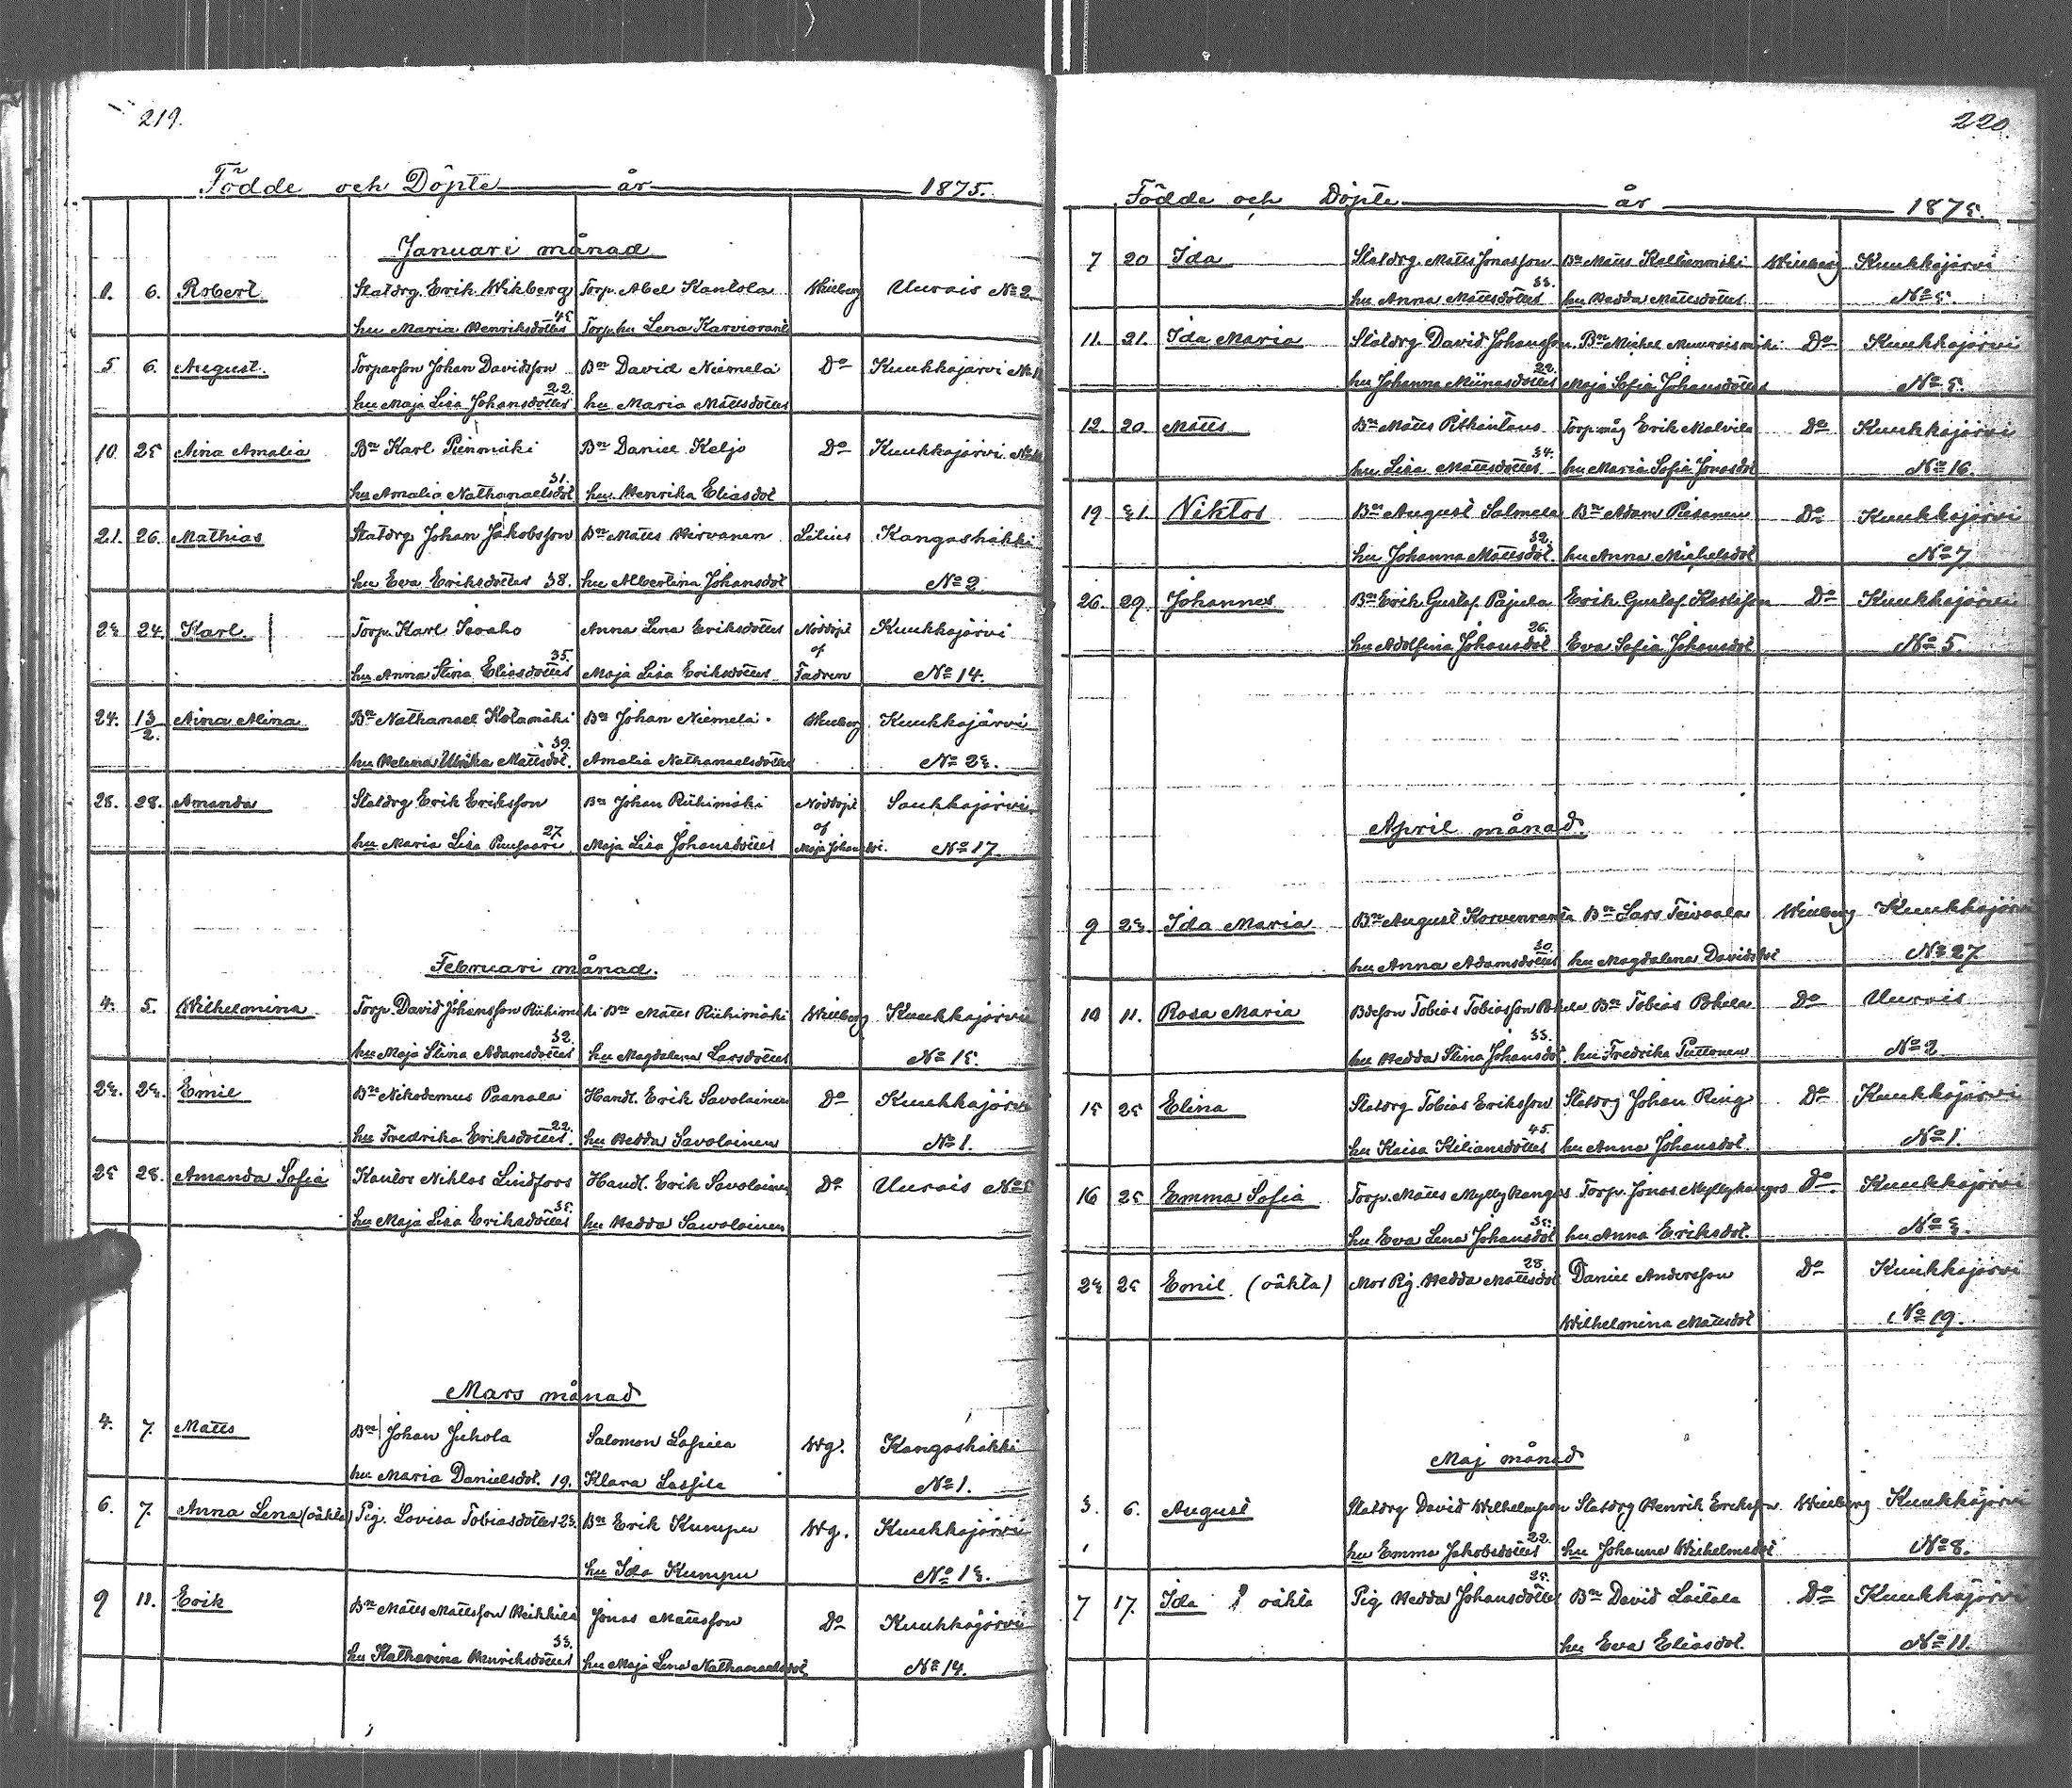 219.
Födde och Döpte år 1875.
Januari månad
1. 6. Robert Statdrg. Erik Wikberg Torp. Abel Kantola Wieberg Uurais No 2
hu Maria Henriksdotter 45 Torp. hu Lena Karvioranta
5 6. August. Torparson Johan Davidsson Bn David Niemelä Do Kuukkajärvi
hu Maja Lisa Johansdotter 22 hu Maria Mattsdotter
10 25 Aina Amalia Bn Karl Pienmäki Bn Daniel Keljo Do Kuukkajärvi
hu Amalia Nathanaelsdot 31. hu Henrika Eliasdot
21. 26. Mathias Statdrg Johan Jakobsson Bn Matts Hirvanen Lilius Kangashäkki
hu Eva Eriksdotter 38. hu Albertina Johansdot No 2
23 24 Karl. Torp. Karl Isoaho Anna Lena Eriksdotter Nöddöpt Kuukkajärvi
af
hu Anna Stina Eliasdotter 35. Maja Lisa Eriksdotter Fadren No 14.
24. 13/2. Aina Alina Bn Nathanael Kotamäki Bn Johan Niemelä Wieberg Kuukkajärvi
hu Helena Ulrika Mattsdot. 39. Amalia Nathanaelsdotter No 23.
28. 28. Amanda Statdrg Erik Eriksson Bn Johan Riihimäki Nöddöpt Saukkajärvi
af
hu Maria Lisa Puusaari 27 Maja Lisa Johansdotter Maja Johansdtr. No 17.
Februari månad.
4. 5. Wilhelmina Torp. David Johansson Riihimäki Bn Matts Riihimäki Wieberg Kuukkajärvi
hu Maja Stina Adamsdotter 32. hu Magdalena Larsdotter No 15.
23. 23. Emil Bn Nikodemus Paanala Handl. Erik Savolainen Do Kuukkajärvi
hu Fredrika Eriksdotter. 22. hu Hedda Savolainen No 1.
25 28. Amanda Sofia Kantor Niklas Lindfors Handl. Erik Savolainen Do Uurais
hu Maja Lisa Eriksdotter 35. hu Hedda Sawolainen
Mars månad
4. 7. Matts Bn Johan Juhola Salomon Lassila Wg. Kangashäkki
hu Maria Danielsdot. 19. Klara Lassila No 1.
6. 7. Anna Lena (oäkta) Pig. Lovisa Tobiasdotter 23. Bn Erik Kumpu Wg. Kuukkajärvi
hu Ida Kumpu No 13.
9 11. Erik Bn Matts Mattsson Heikkilä Jonas Mattsson Do Kuukkajärvi
hu Katharina Henriksdotter 33. hu Maja Lena Nathanaelsdot No 14.
220.
Födde och Döpte år 1875.
7 20 Ida Statdrg. Matts Jonasson Bn Matts Kallionmäki Wieberg Kuukkajärvi
hu Anna Mattsdotter 33. hu Hedda Mattsdotter No 5.
11. 21. Ida Maria Statdrg David Johansson Bn Michel Muuraismäki Do Kuukkajärvi
hu Johanna Miinasdotter 22. Maja Sofia Johansdotter No 5.
12. 20. Matts Bn Matts Pitkäntaus Torp.måg Erik Malvila Do Kuukkajärvi
hu Lisa Mattsdotter 34. hu Maria Sofia Jonasdot No 16.
19 21. Niktor Bn August Salmela Bn Adam Piesanen Do Kuukkajärvi
hu Johanna Mattsdot. 32. hu Anna Michelsdot No 7
26. 29. Johannes Bn Erik Gustaf Pajula Erik Gustaf Karlsson Do Kuukkajärvi
hu Adolfina Johansdot 26. Eva Sofia Johansdot No 5.
April månad.
9 23 Ida Maria Bn August Korvenranta Bn Lars Teivaala Wieberg Kuukkajärvi
hu Anna Adamsdotter 30. hu Magdalena Davidsdtr No 27
10 11. Rosa Maria Bdeson Tobias Tobiasson Pohela Bn Tobias Pohela Do Uurais
hu Hedda Stina Johansdot 33. hu Fredrika Puttonen No 2
15 25 Elina Statdrg Tobias Eriksson Statdrg Johan Ring Do Kuukkajärvi
hu Kaisa Kiliansdotter 45. hu Anna Johansdot. No 1.
16 25 Emma Sofia Torp. Matts Myllykangas Torp. Jonas Myllykangas Do Kuukkajärvi
hu Eva Lena Johansdot 35. hu Anna Eriksdot. No 3.
23 25 Emil. (oäkta) Mor Pig. Hedda Mattsdot 28. Daniel Andersson Do Kuukkajärvi
Wilhelmina Mattsdot No 19.
Maj månad
3. 6. August Statdrg David Wilhelmsson Statdrg Henrik Eriksson Wieberg Kuukkajärvi
hu Emma Jakobsdotter 22. hu Johanna Wilhelmsdot No 8.
7 17. Ida oäkta Pig Hedda Johansdotter 25. Bn David Laitala Do Kuukkajärvi
hu Eva Eliasdot. No 11.